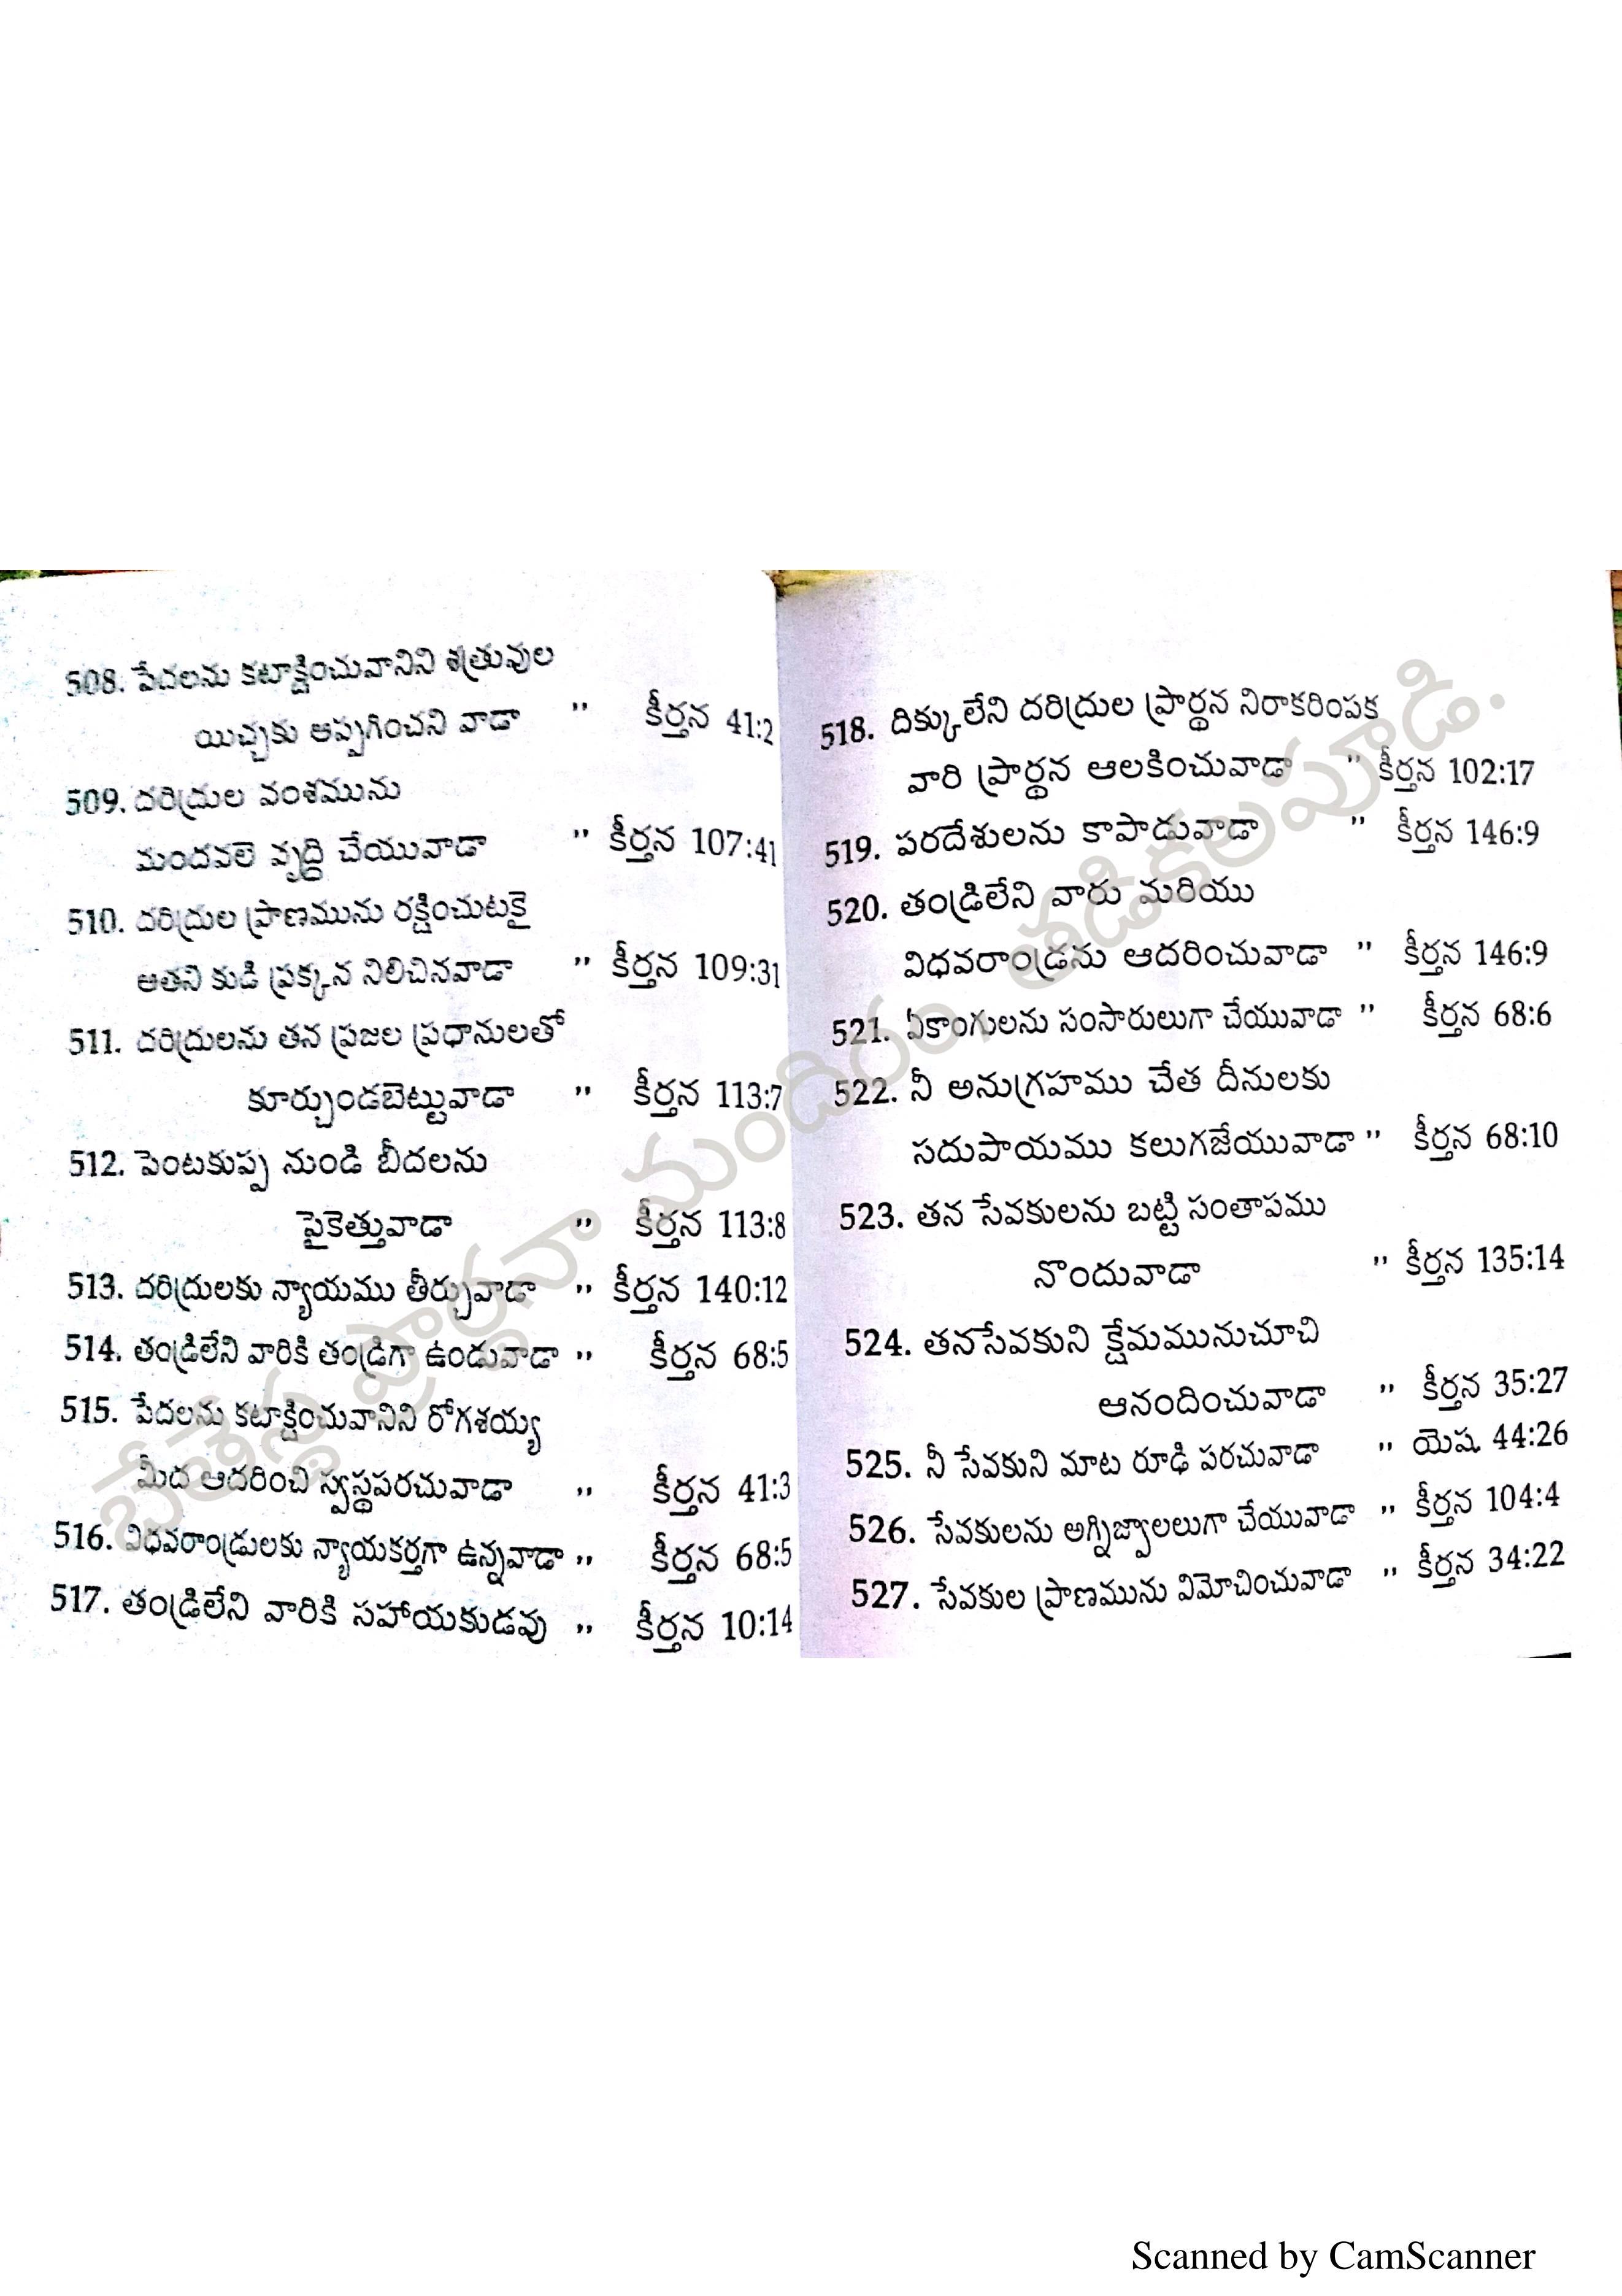 508. పేదలను కటాక్షించువానిని శత్రువుల
యిచ్చకు అప్పగించని వాడా " కీర్తన 41:2
509. దరిద్రుల వంశమును
మందవలె వృద్ధి చేయువాడా " కీర్తన 107:41
510. దరిద్రుల ప్రాణమును రక్షించుటకై
అతని కుడి ప్రక్కన నిలిచినవాడా " కీర్తన 109:31
511. దరిద్రులను తన ప్రజల ప్రధానులతో
కూర్చుండబెట్టువాడా " కీర్తన 113:7
512. పెంటకుప్ప నుండి బీదలను
పైకెత్తువాడా " కీర్తన 113:8
513. దరిద్రులకు న్యాయము తీర్చువాడా " కీర్తన 140:12
514. తండ్రిలేని వారికి తండ్రిగా ఉండువాడా " కీర్తన 68:5
515. పేదలను కటాక్షించువానిని రోగశయ్య
మీద ఆదరించి స్వస్థపరచువాడా " కీర్తన 41:3
516. విధవరాండ్రులకు న్యాయకర్తగా ఉన్నవాడా " కీర్తన 68:5
517. తండ్రిలేని వారికి సహాయకుడవు " కీర్తన 10:14
518. దిక్కులేని దరిద్రుల ప్రార్థన నిరాకరింపక
వారి ప్రార్థన ఆలకించువాడా " కీర్తన 102:17
519. పరదేశులను కాపాడువాడా " కీర్తన 146:9
520. తండ్రిలేని వారు మరియు
విధవరాండ్రను ఆదరించువాడా " కీర్తన 146:9
521. ఏకాంగులను సంసారులుగా చేయువాడా " కీర్తన 68:6
522. నీ అనుగ్రహము చేత దీనులకు
సదుపాయము కలుగజేయువాడా " కీర్తన 68:10
523. తన సేవకులను బట్టి సంతాపము
నొందువాడా " కీర్తన 135:14
524. తనసేవకుని క్షేమమునుచూచి
ఆనందించువాడా " కీర్తన 35:27
525. నీ సేవకుని మాట రూఢి పరచువాడా " యెష. 44:26
526. సేవకులను అగ్నిజ్వాలలుగా చేయువాడా " కీర్తన 104:4
527. సేవకుల ప్రాణమును విమోచించువాడా " కీర్తన 34:22
ప్రార్థనా మందిరం, తాడికలపూడి.
Scanned by CamScanner